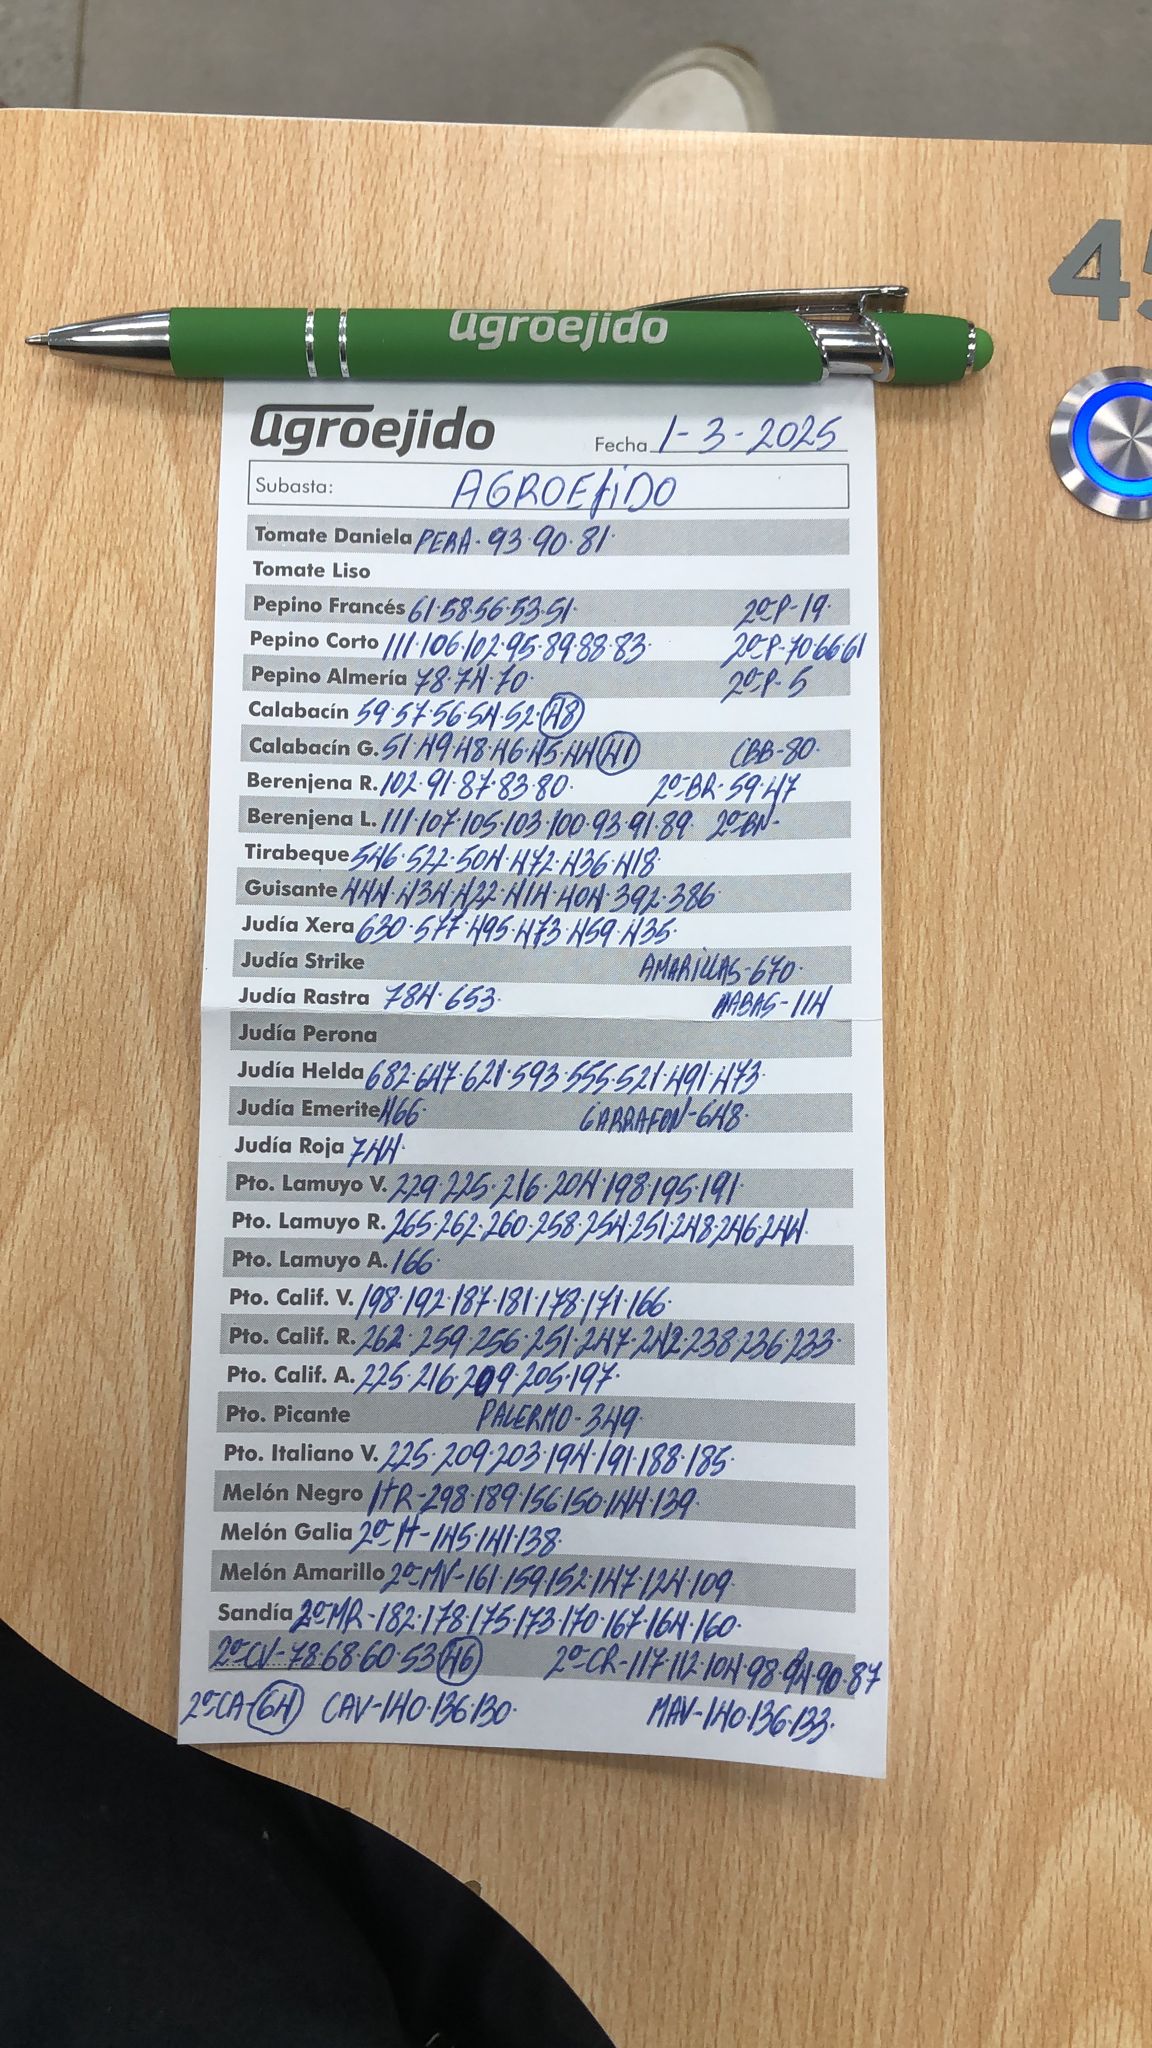 agroejido
45
agroejido Fecha 1-3-2025
Subasta: AGROEJIDO
Tomate Daniela PERA-93·90·81·
Tomate Liso
Pepino Francés 61·58·56·53·51· 2ºP-19·
Pepino Corto 111·106·102·95·89·88·83· 2ºP-70·66·61
Pepino Almería 78·74·70· 2ºP-5
Calabacín 59·57·56·54·52·48
Calabacín G. 51·49·48·46·45·44·41 CBB-80·
Berenjena R. 102·91·87·83·80· 2ºBR-59·47
Berenjena L. 111·107·105·103·100·93·91·89· 2ºBN-
Tirabeque 546·522·504·472·436·418·
Guisante 444·434·422·414·404·392·386
Judía Xera 630·577·495·473·459·435·
Judía Strike AMARILLAS-670·
Judía Rastra 784·653· HABAS-114
Judía Perona
Judía Helda 682·647·621·593·555·521·491·473·
Judía Emerite 466· GARRAFON-648·
Judía Roja 744·
Pto. Lamuyo V. 229·225·216·204·198·195·191·
Pto. Lamuyo R. 265·262·260·258·254·251·248·246·244·
Pto. Lamuyo A. 166·
Pto. Calif. V. 198·192·187·181·178·171·166·
Pto. Calif. R. 262·259·256·251·247·242·238·236·233·
Pto. Calif. A. 225·216·209·205·197·
Pto. Picante PALERMO-349·
Pto. Italiano V. 225·209·203·194·191·188·185·
Melón Negro HR-298·189·156·150·144·139·
Melón Galia 2ºH-145·141·138·
Melón Amarillo 2ºMV-161·159·152·147·124·109·
Sandía 2ºMR-182·178·175·173·170·167·164·160·
2ºCV-78·68·60·53·46 2ºCR-117·112·104·98·94·90·87
2ºCA-64 CAV-140·136·130· MAV-140·136·133·